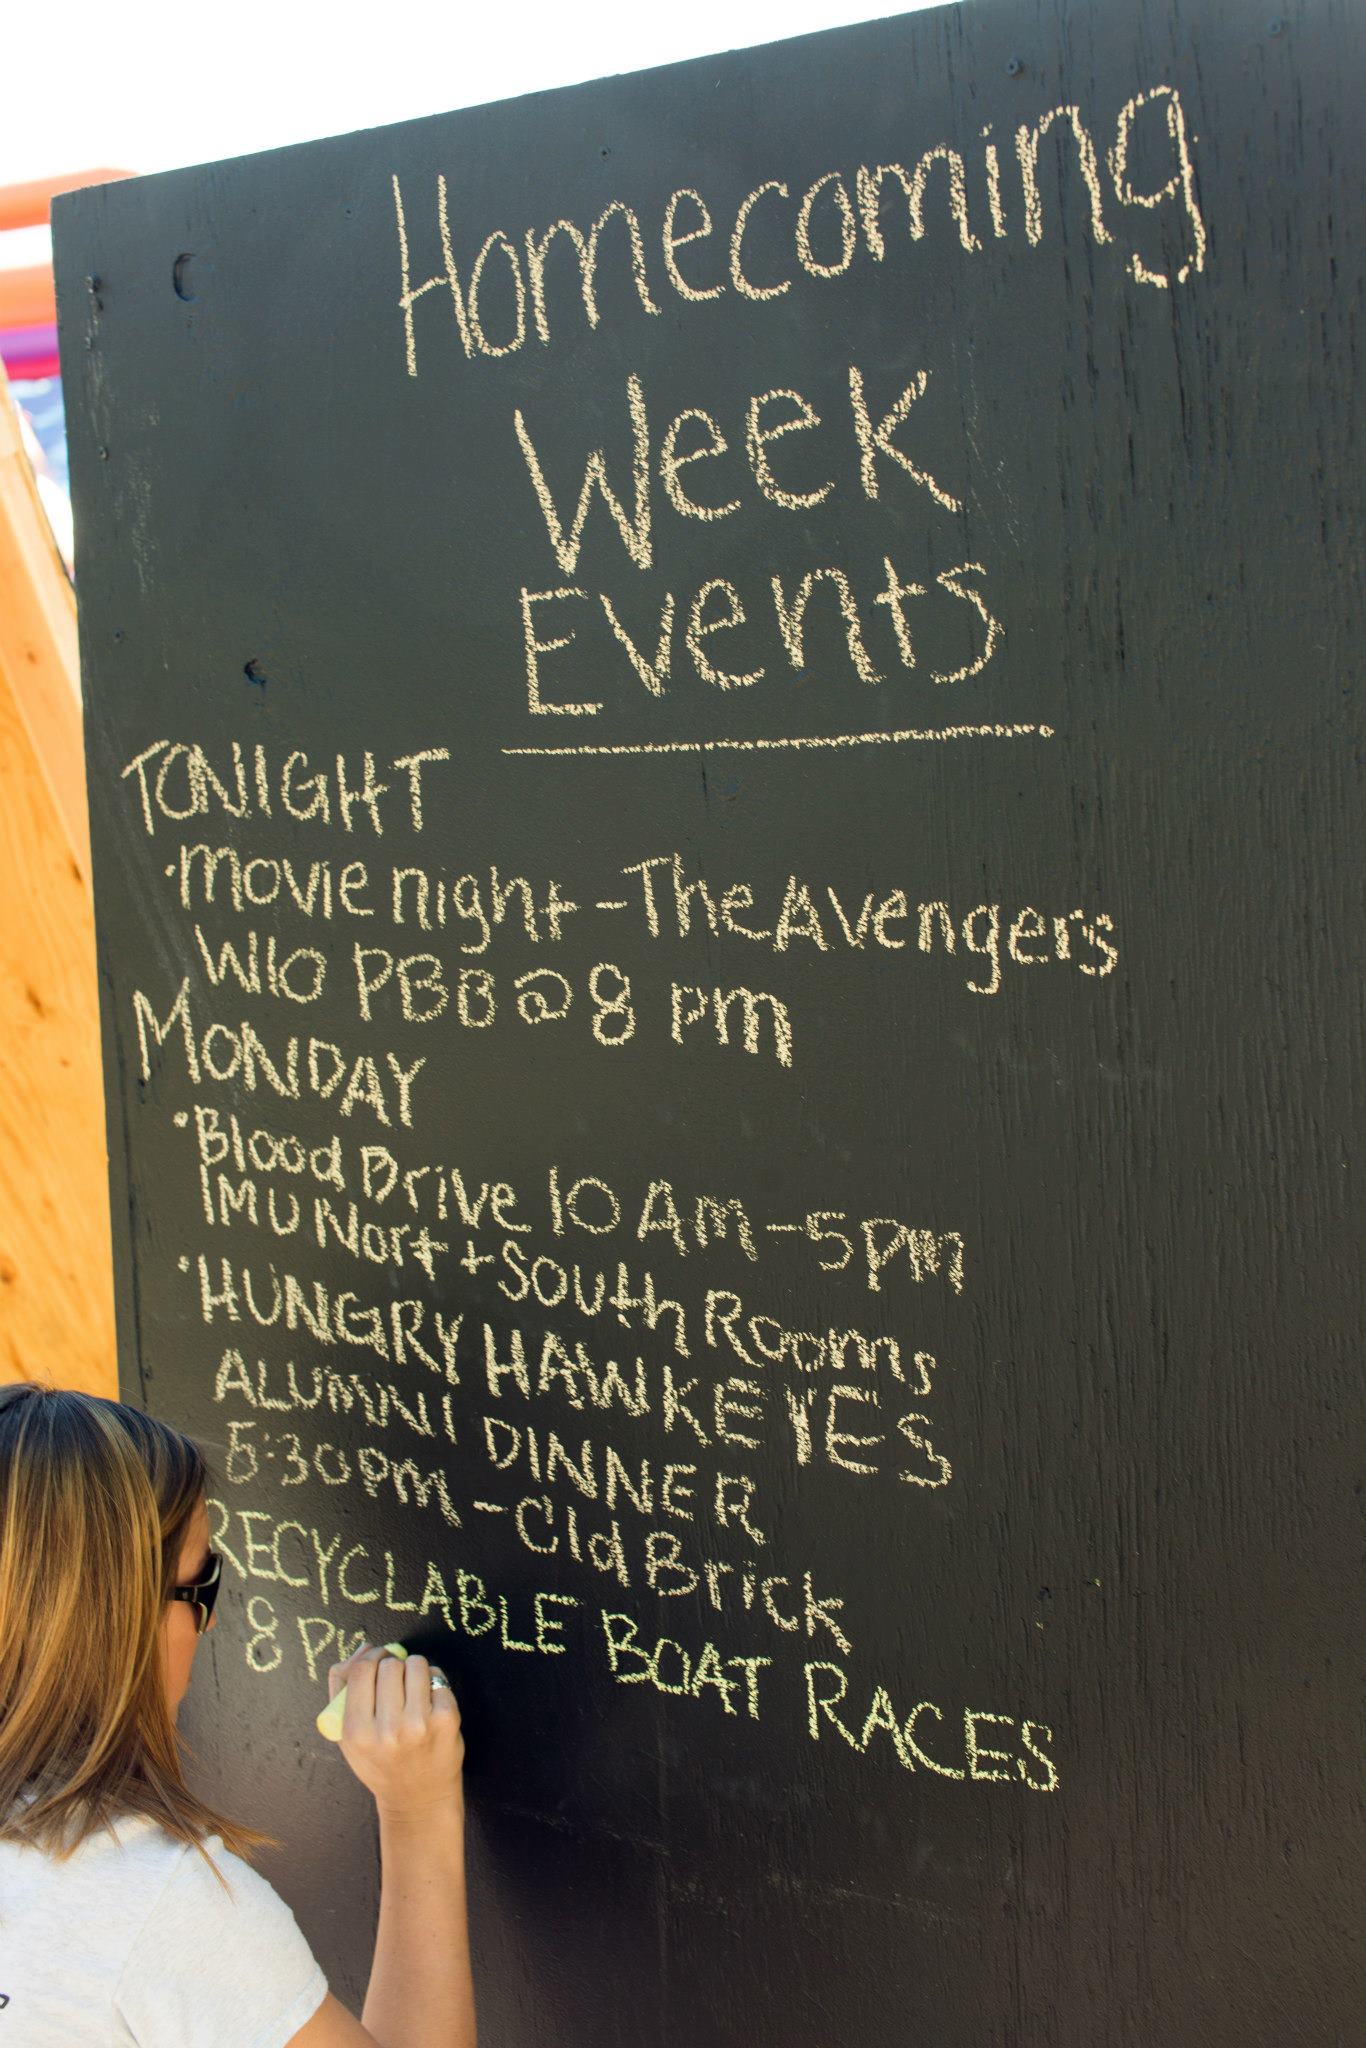 Homecoming
Week
Events
TONIGHT
·movie night - The Avengers
W10 PBB @ 8 pm
MONDAY
·Blood Drive 10 AM - 5 pm
IMU Nort + South Rooms
·HUNGRY HAWKEYES
ALUMNI DINNER
5:30pm - Old Brick
RECYCLABLE BOAT RACES
8 P